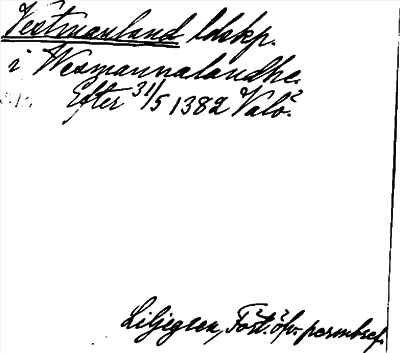 Västmanland ldskp.
i Wesmannalandhe.
Efter 31/5 1382 Valö.
Liljegren, Först. öfv. permbref.